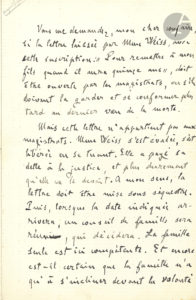 Vous me demandez, mon cher confrère
si la lettre laissée par Mme Weiss, avec
cette suscription : "Pour remettre à mon
fils quand il aura quinze ans", doit
être ouverte par les magistrats, ou s'ils
doivent la garder et se conformer plus
tard au dernier vœu de la morte.
Mais cette lettre n'appartient pas aux
magistrats. Mme Weiss s'est évadée, s'est
libérée en se tuant. Elle a payé sa
dette à la justice, et plus durement
qu'elle ne le devait. À mon sens, la
lettre doit être mise sous séquestre.
Puis, lorsque la date indiquée ar-
rivera, un conseil de famille sera
réuni, qui décidera. La famille
seule est ici compétente. Et encore
est-il certain que la famille n'a
qu'à s'incliner devant la volonté